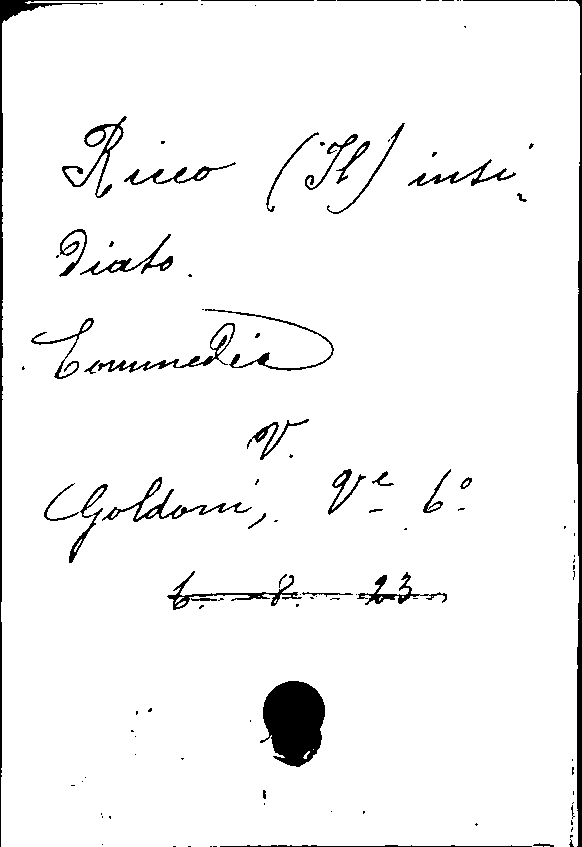 Ricco (Il) insi-
diato.
Commedia
V.
Goldoni, Ve 6°
6. 8. 23